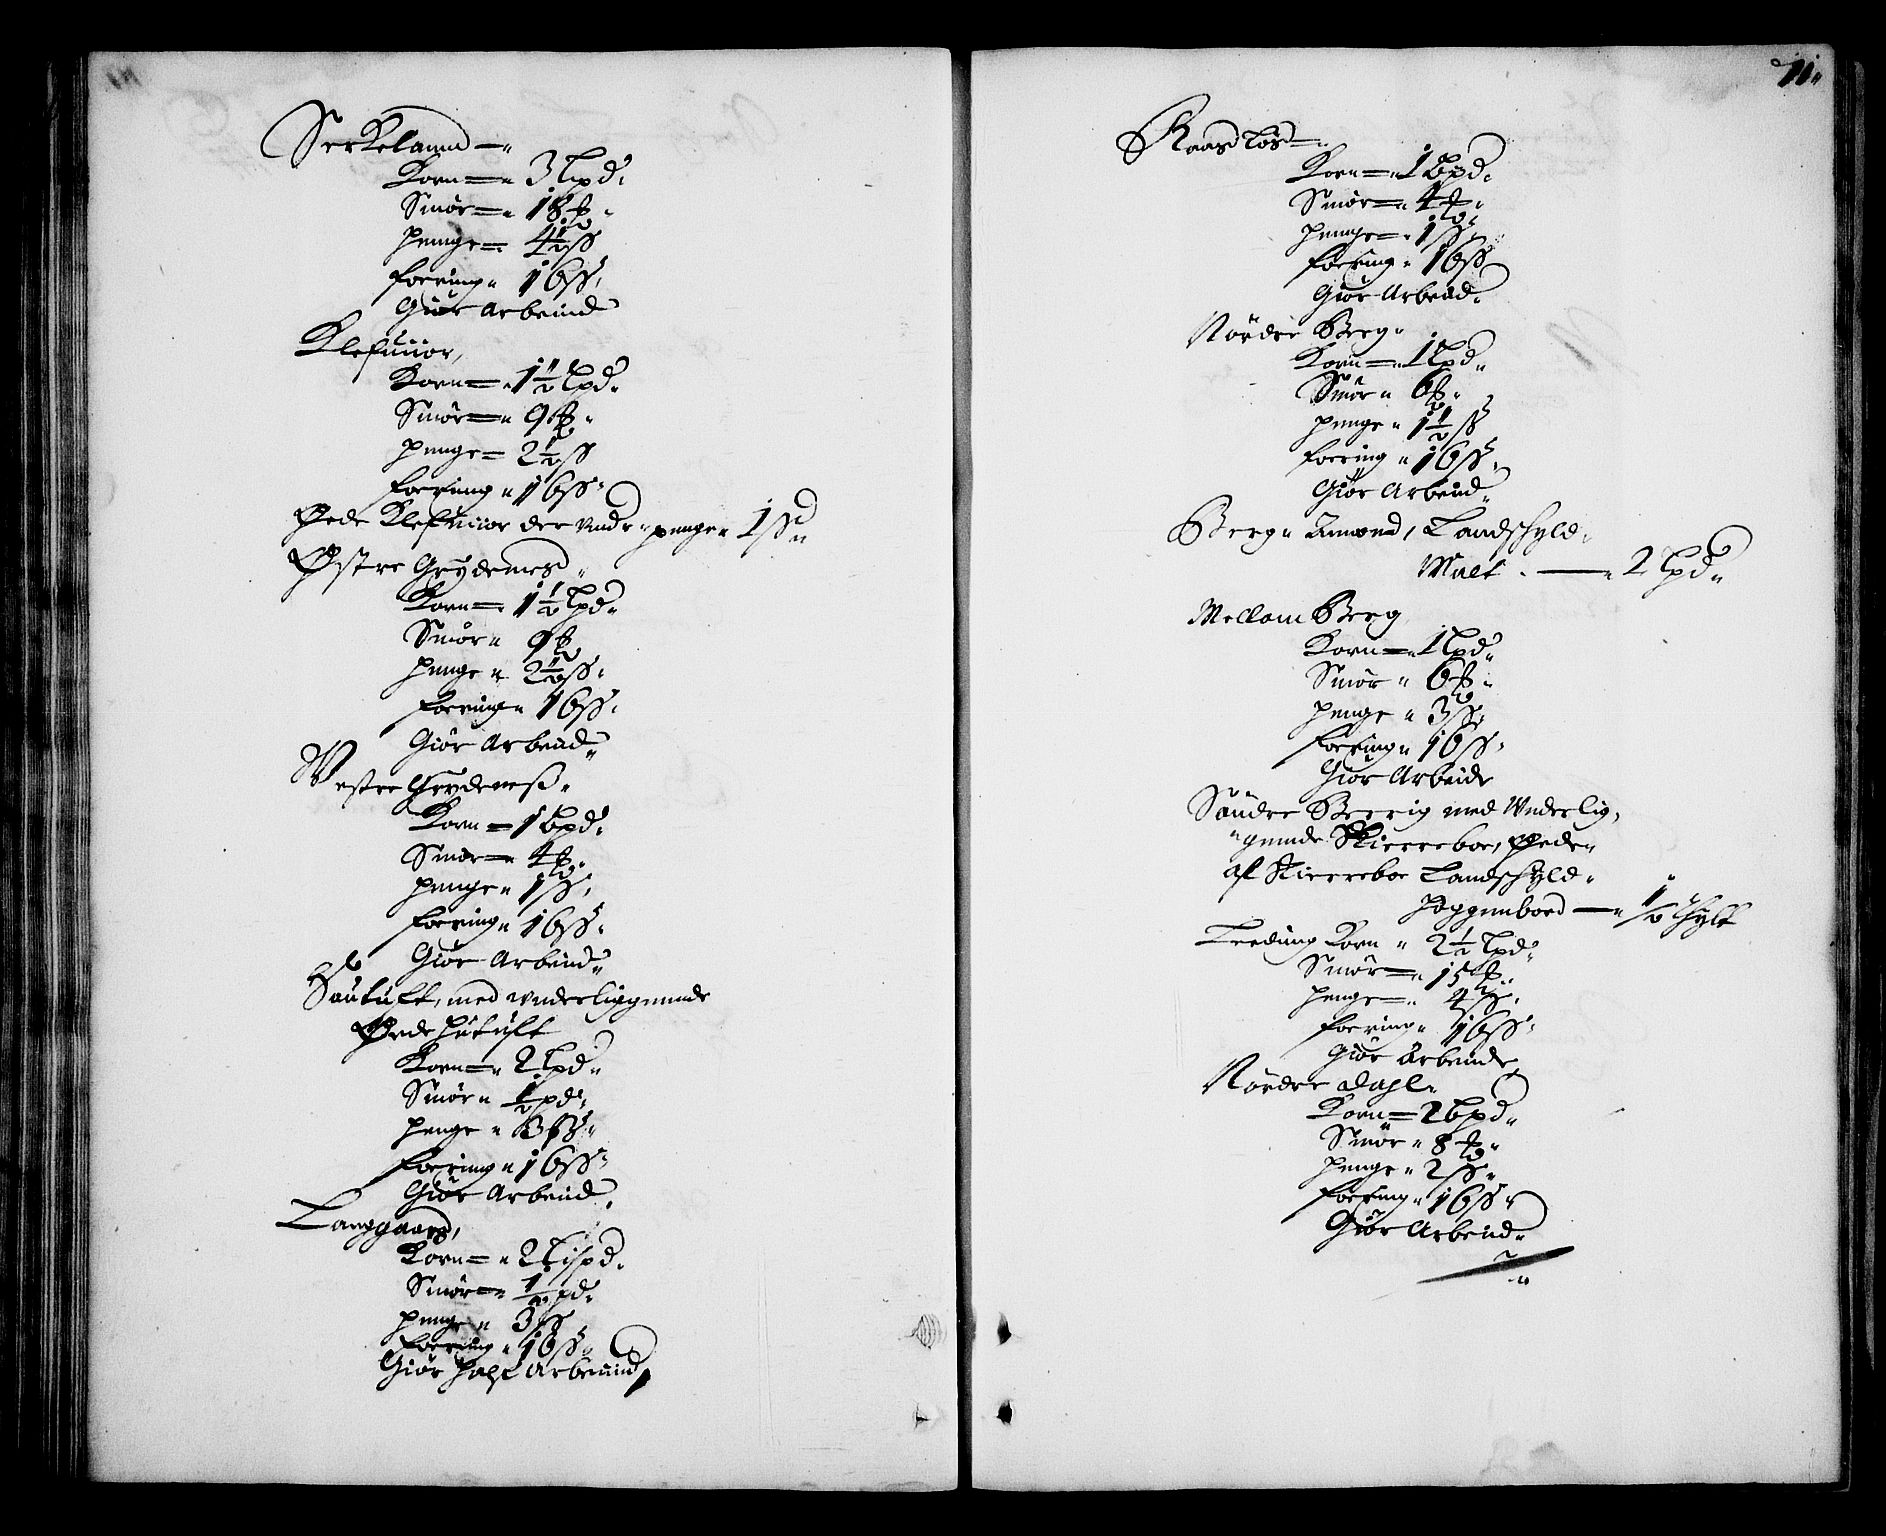 Serkelannd
Korn 3 Lpd.
Smör 18 ℔.
penge 4½ ss
foering 16 ss.
Giör Arbeid
Klefmior,
Korn 1½ Lpd.
Smör 9 ℔.
penge 2½ ss
foering 16 ss.
Øede Klefmior der Vndr. penge 1 ss
Østre Grydenes
Korn 1½ Lpd.
Smör 9 ℔
penge 2½ ss.
foering 16 ss.
Giör Arbeid
Westre Grydeneß.
Korn 1 Lpd.
Smör 4 ℔.
penge 1 ss.
foering 16 ss.
Giör Arbeid
med vnderliggennde
Øede
Korn 2 Lpd
Smör ½ pd.
penge 3 ss.
foering 16 ss.
Giör Arbeid.
Langgaard,
Korn 2 Lispd.
Smör ½ pd.
penge 3 ss.
foering 16 ss.
Giör half Arbeid
11.
Raastös
Korn 1 Lpd.
Smör 4 ℔.
penge 1 ss.
foering 16 ss
Giör Arbeid.
Nördre Berg.
Korn 1 Lpd.
Smör 6 ℔.
penge 1½ ss
foering 16 ss.
Giör Arbeid.
Berg. Landschyld.
Malt 2 Lpd.
Mellom Berg
Korn 1 Lpd.
Smör 6 ℔.
penge 3 ss.
foering 16 ss.
Giör Arbeide
Söndre Berrig med Vnderlig,
gende Skierreboe, Øede
af Skierreboe Landschyld.
Hoggenboed ½ Tylt
Leeding Korn 2½ Lpd.
Smör 15 ℔.
penge 4 ss.
foering 16 ss.
Giör Arbeide
Nördre Dahl.
Korn 2 Lpd.
Smör 8 ℔.
penge 2 ss.
foering 16 ss.
Giör Arbeid.